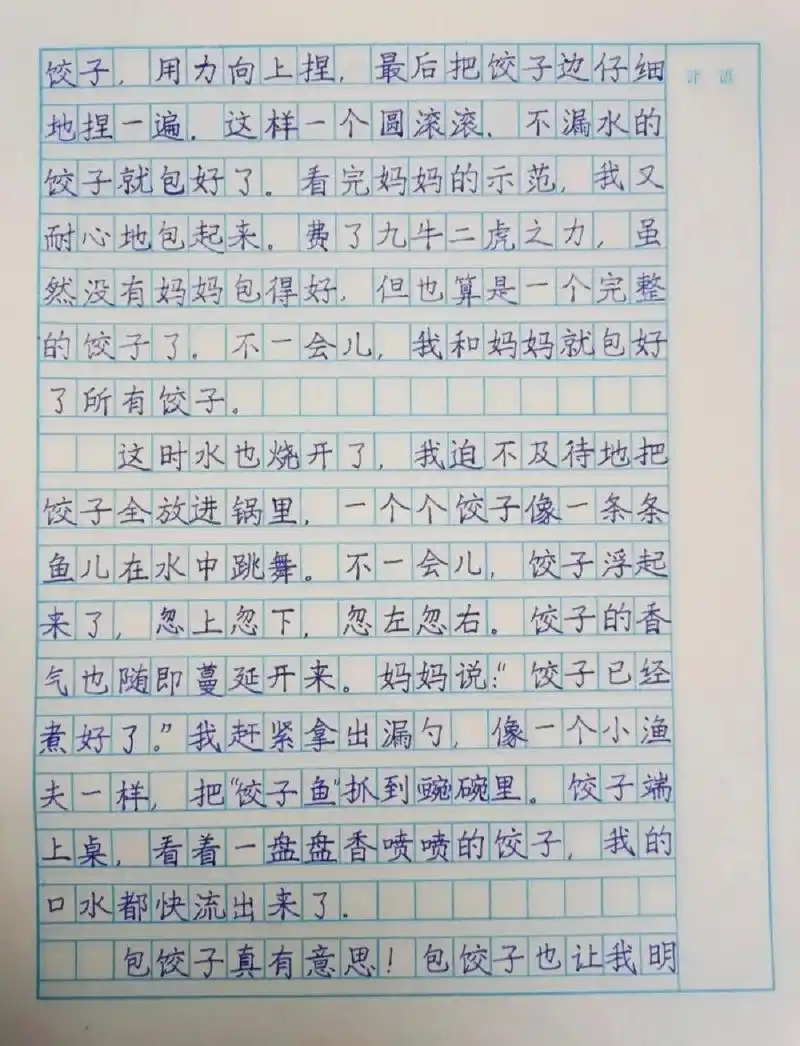 评语
饺子，用力向上捏，最后把饺子边仔细
地捏一遍．这样一个圆滚滚．不漏水的
饺子就包好了。看完妈妈的示范，我又
耐心地包起来。费了九牛二虎之力，虽
然没有妈妈包得好，但也算是一个完整
的饺子了．不一会儿，我和妈妈就包好
了所有饺子。
这时水也烧开了，我迫不及待地把
饺子全放进锅里，一个个饺子像一条条
鱼儿在水中跳舞。不一会儿，饺子浮起
来了，忽上忽下，忽左忽右。饺子的香
气也随即蔓延开来。妈妈说：“饺子已经
煮好了。”我赶紧拿出漏勺，像一个小渔
夫一样，把“饺子鱼”抓到碗里。饺子端
上桌，看着一盘盘香喷喷的饺子，我的
口水都快流出来了．
包饺子真有意思！包饺子也让我明